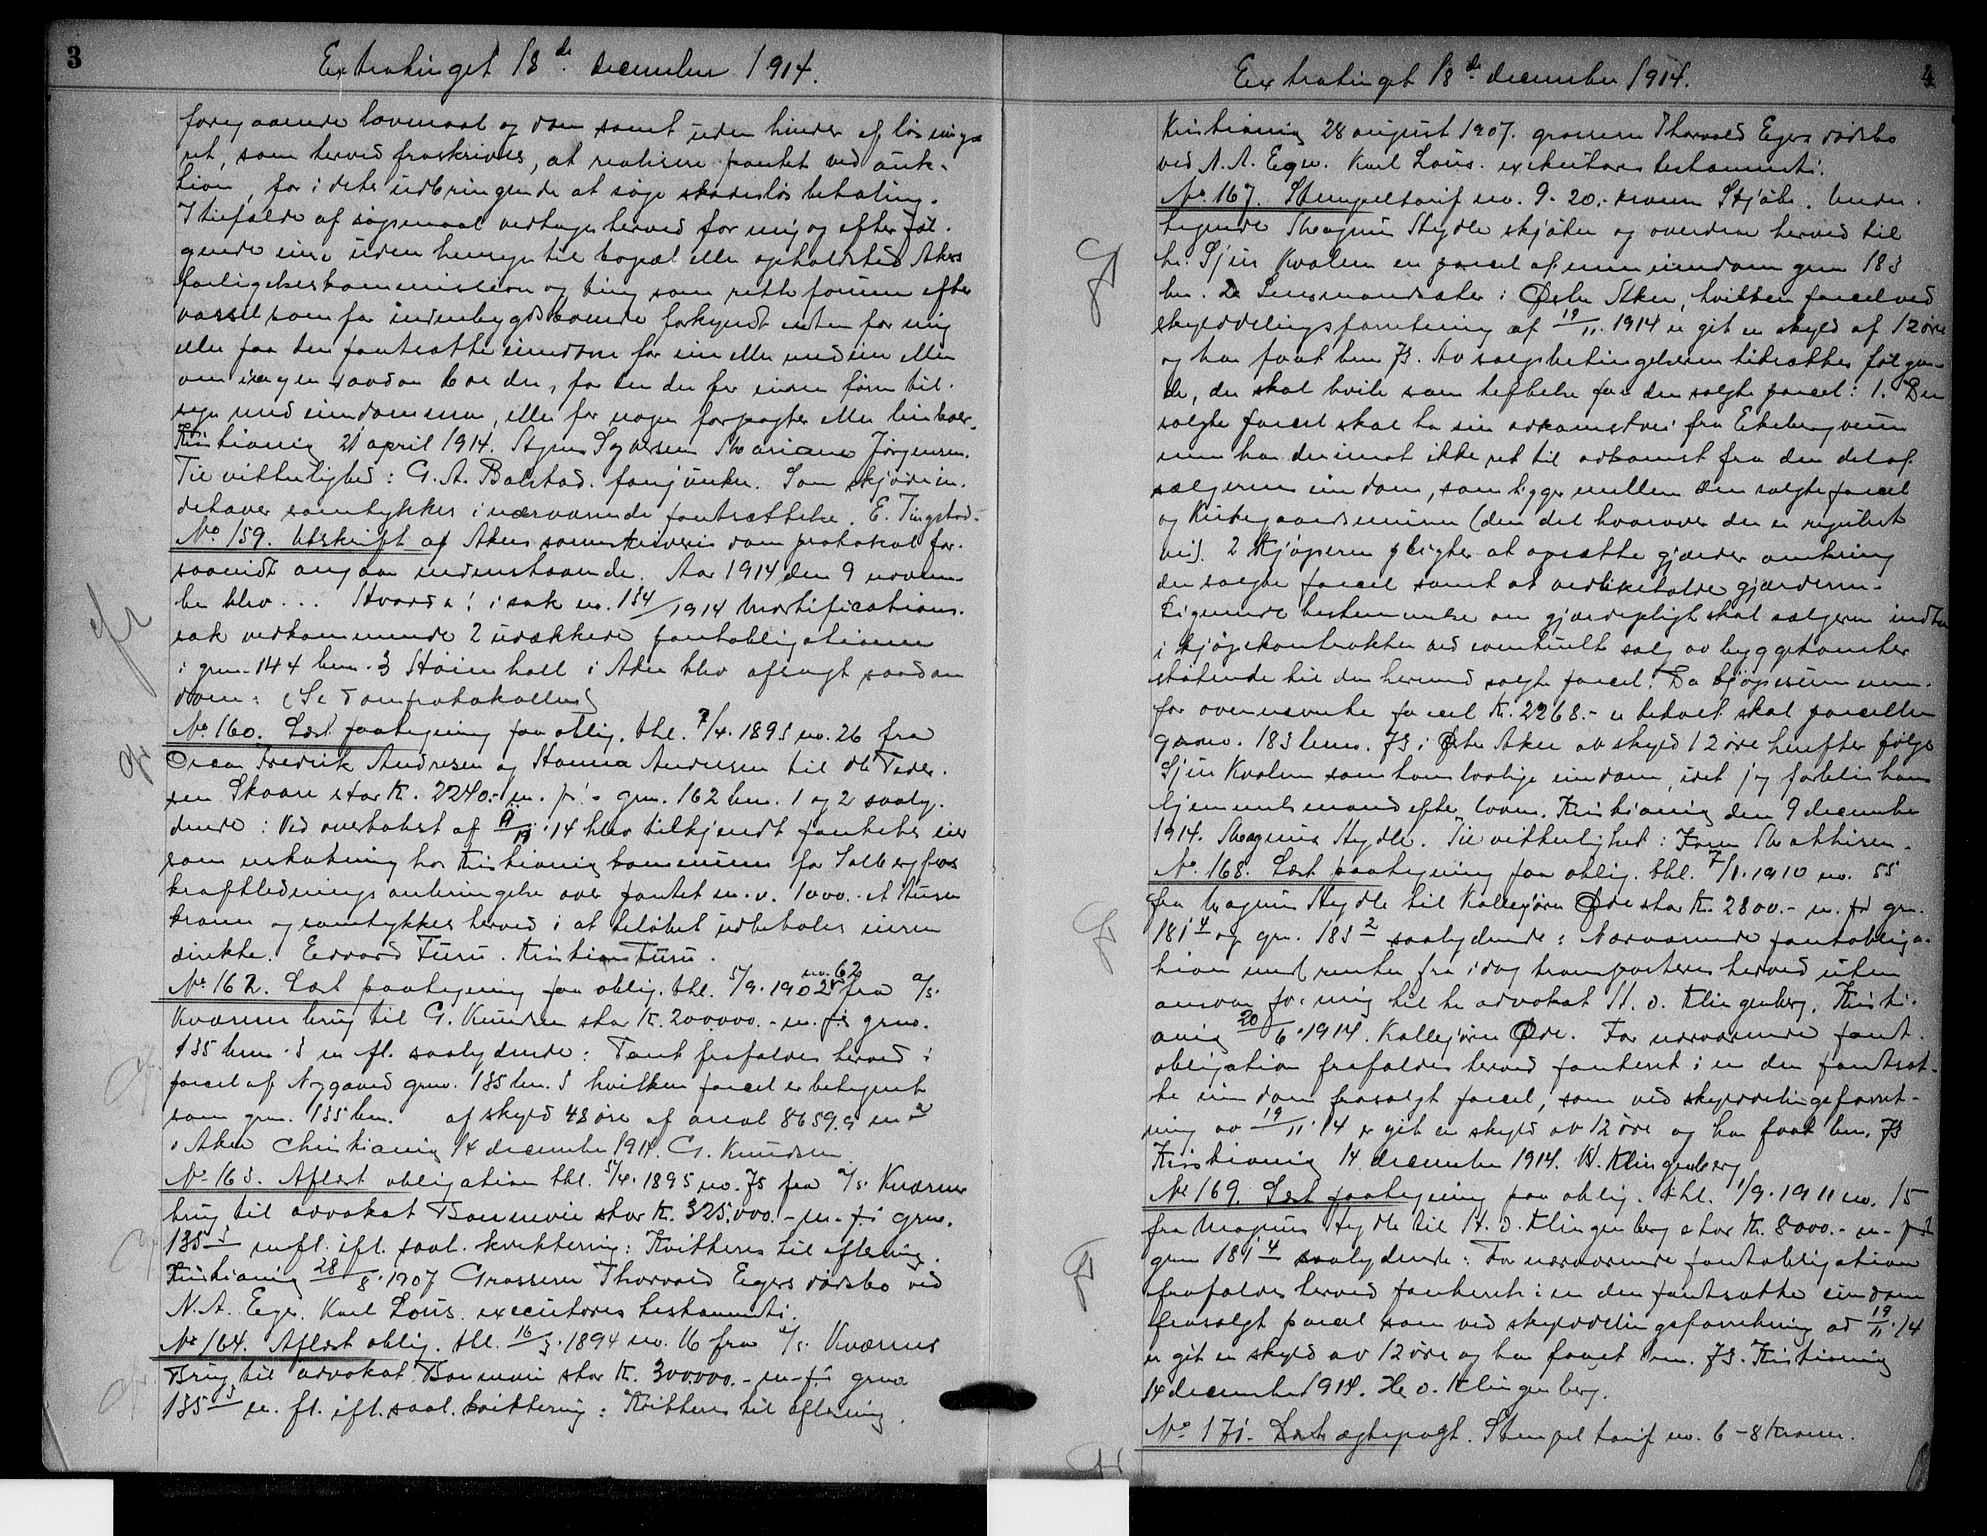 3
Extratinget 18de december 1914.
foregaaende lovmaal og dom samt uden hinder af løsnings
ret, som herved fraskrives, at realisere pantet ved auk-
tion, for i dets udbringende at søge skadesløs betaling.
I tilfælde af søgsmaal vedtages herved for mig og efterføl-
gende eiere uden hensyn til bopæl eller opholdsted Akers
forligelseskommission og ting som rette forum efter
varsel som for indenbygdsboende forkyndt enten for mig
eller paa den pantsatte eiendom for en eller anden eller
om ingen saadan boe der, for den der er eieren tilsyn
med eiendommen, eller for nogen forpagter eller leieboer.
Kristiania 21 april 1914. Agnes Syversen Mariane Jørgensen.
Til vitterlighed: G. A. Bolstad. fanejunker. Som skjødein-
dehaver samtykkes i nærværende pantsættelse. E. Tingstad.
No 159. Utskrift af Akers sorenskriveris domprotokol for-
saavidt angaar nedenstaaende. Aar 1914 den 9 novem-
ber blev ... Hvorda: i sak no. 154/1914 Mortifications-
sak vedkommende 2 udækkede pantobligationer
i gno. 144 bno. 3 Høienhall i Aker blev afsagt saadan
dom: (Se domprotokollen)
No 160. Læst paategning paa oblig. thl. 7/4. 1893 no. 26 fra
Oscar Fredrik Andresen og Hanna Andersen til Ole Peder-
sen Skaare stor Kr. 2240.- m. p. i gno. 162 bno. 1 og 2 saaly-
dende: Ved overtakst af 9/10. 14 blev tilkjendt pantets eier
som erstatning hos Kristiania kommune for Solbergfos
kraftlednings anbringelse over pantet m. v. 1000.- et tusen
kroner og samtykkes herved i at beløbet udbetales eieren
direkte. Edvard Furu. Kristian Furu.
No 162. Læst paategning paa oblig. thl. 5/9. 1902 no. 62 fra A/S.
Kværner brug til G. Knudsen stor Kr. 200000.- m. p. i gno.
135 bno. 3 m. fl. saalydende: Pant frafaldes herved i
parcel af Nygaard gno. 135 bno. 3 hvilken parcel er betegnet
som gno. 135 bno. af skyld 48 øre af areal 8659,9 m2
i Aker Christiania 14 december 1914. G. Knudsen
No 163. Aflæst obligation thl. 5/4. 1895 no. 75 fra A/S. Kværner
brug til advokat Bonnevie stor Kr. 325.000.- m. p. i gno.
135 3 m. fl. ifl. saal. kvittering: Kvitteres til aflæsning.
Kristiania 28/8. 1907 Grosserer Thorvald Egers dødsbo ved
N. A. Eger. Karl Lous. executores testamenti.
No 164. Aflæst oblig. thl. 16/3. 1894 no. 16 fra A/S. Kværner
Brug til advokat Bonnevie stor Kr. 300.000.- m. p. i gno.
135 3 m. fl. ifl. saal. kvittering: Kvitteres til aflæsning.
4
Extratinget 18de december 1914.
Kristiania 28 august 1907. grosserer Thorvald Egers dødsbo
ved N. A. Eger. Karl Lous. exekutores testamenti.
No. 167. Stempeltarif no. 9. 20.- kroner Skjøte. Under-
tegnede Magnus Hydle skjøter og overdrar herved til
hr. Sjur Kvalem en parcel af min eiendom gno 183
bno. 2 Lensmandsæter i Østre Aker, hvilken parcel ved
skylddelingsforretning af 19/11. 1914 er git en skyld af 12 øre
og har faat bno 73. Av salgsbetingelserne hitsættes følgen-
de, der skal hvile som heftelse paa den solgte parcel: 1. Den
solgte parcel skal ha sin adkomstvei fra Ekebergveien
men har derimot ikke ret til adkomst fra den del af
sælgerens eiendom, som ligger mellem den solgte parcel
og Kirkegaardsveien (den del hvorover der er regulert
vei). 2 Kjøperen pligter at opsætte gjærder omkring
den solgte parcel samt at vedlikeholde gjærderne.
Lignende bestemmelse om gjærdepligt skal sælgeren indta
i kjøpekontrakter ved eventuelt salg av byggetomter
støtende til den herved solgte parcel. Da kjøpesummen
for ovennævnte parcel Kr. 2268.- er betalt skal parcellen
gaardsno. 183 bno. 73 i Østre Aker av skyld 12 øre herefter følge
Sjur Kvalem som hans lovlige eiendom, idet jeg forblir hans
hjemmelsmand efter loven. Kristiania den 9 december
1914. Magnus Hydle. Til vitterlighet: Joren Mathisen.
No. 168. Læst paategning paa oblig. thl. 7/1. 1910 no. 55
fra Magnus Hydle til Kallejøren Øde stor Kr. 2800.- m. p. i gno.
181 4 og gno. 183 2 saalydende: Nærværende pantobliga-
tion med renter fra idag transporteres herved uten
ansvar for mig til hr advokat H. O. Klingenberg. Kristi-
ania 20/6. 1914. Kallejøren Øde. Fra nærværende pant-
obligation frafaldes herved panteret i en den pantsat-
te eiendom frasolgt parcel, som ved skylddelingsforret-
ning av 19/11. 14 er git en skyld av 12 øre og har faat bno. 73
Kristiania 14 december 1914. H. Klingenberg
No 169. Læst paategning paa oblig. thl. 1/9. 1911 no. 15
fra Magnus Hydle til H. O. Klingenberg stor Kr. 8000.- m. p. i
gno 181 4 saalydende: Fra nærværende pantobligation
frafaldes herved panteret i en den pantsatte eiendom
frasolgt parcel som ved skylddelingsforretning av 19/11. 14
er git en skyld av 12 øre og har faaet bno. 73. Kristiania
14 december 1914. H. O. Klingenberg.
No. 171. Læst ægtepagt. Stempeltarif no. 6 - 8 kroner.